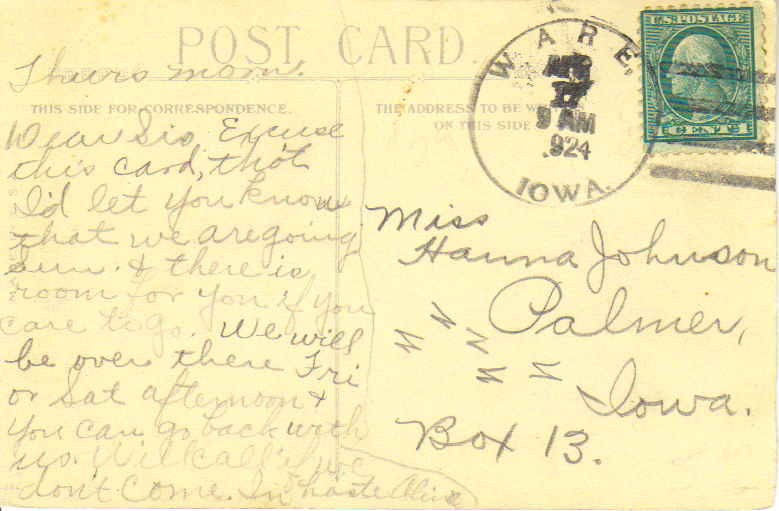 POST CARD.
Thurs morn.
THIS SIDE FOR CORRESPONDENCE.
Dear Sis, Excuse
this card, tho't
I'd let you know
that we are going
Sun. & there is
room for you if you
care to go. We will
be over there Fri
or Sat afternoon &
you can go back with
us. Will call if we
don't come. In haste Olive
THE ADDRESS TO BE W
ON THIS SIDE
WARE,
17
9 AM
1924
IOWA.
U.S. POSTAGE
1 CENT 1
Miss
Hanna Johnson
Palmer,
Iowa.
Box 13.